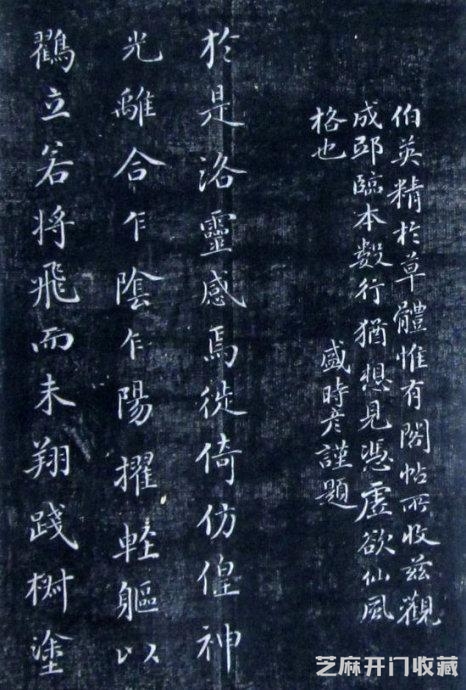 伯英精於草體惟有閣帖所收茲觀
成邸臨本數行猶想見憑虛欲仙風
格也
盛時彥謹題
於是洛靈感焉徙倚仿偟神
光離合乍陰乍陽擢輕軀以
鸖立若將飛而未翔踐樹塗
芝麻开门收藏